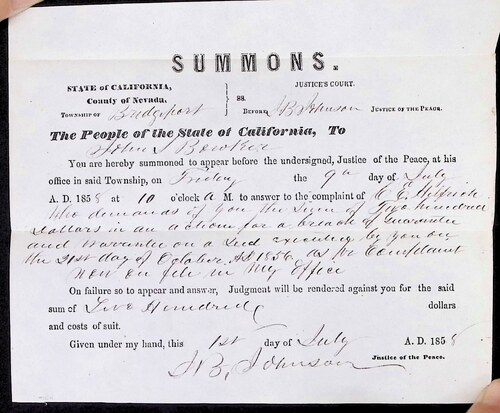 SUMMONS.
STATE OF CALIFORNIA, JUSTICE'S COURT.
County of Nevada. ss.
TOWNSHIP OF Bridgeport BEFORE J B Johnson JUSTICE OF THE PEACE.
The People of the State of California, To
John S Bowker
You are hereby summoned to appear before the undersigned, Justice of the Peace, at his
office in said Township, on Friday the 9th day of July
A. D. 1858 at 10 o'clock A M. to answer to the complaint of C. E.
Who demands of you the Sum of Two hundred
Dollars in an action for a breach of Guarantee
and Warrantee on a Deed executed by you on
the 21st day of October AD 1856 as per Complaint
Now on file in My Office
On failure so to appear and answer, Judgment will be rendered against you for the said
sum of Two Hundred dollars
and costs of suit.
Given under my hand, this 1st day of July A. D. 1858
J B, Johnson
Justice of the Peace.